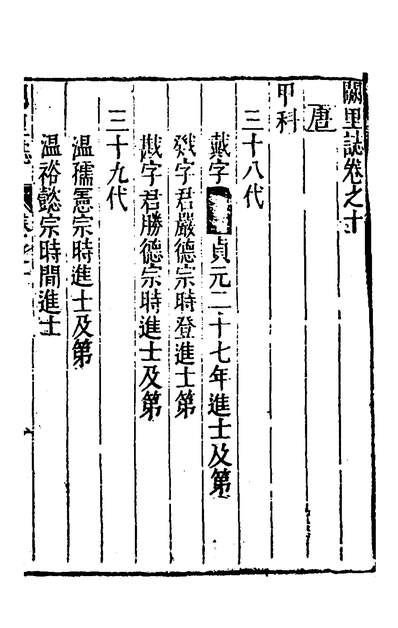 闕里誌卷之十
唐
甲科
三十八代
戴字貞元二十七年進士及第
戣字君嚴德宗時登進士第
戢字君勝德宗時進士及第
三十九代
溫孺憲宗時進士及第
溫裕懿宗時間進士